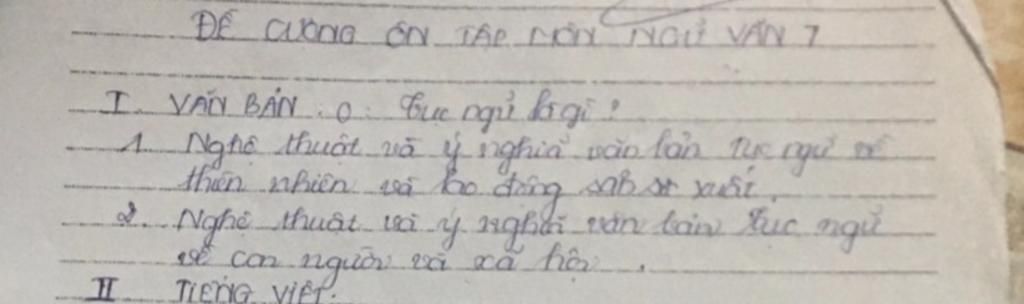 ĐỀ CƯƠNG ÔN TẬP MÔN NGỮ VĂN 7
I. VĂN BẢN. 0. Tục ngữ là gì?
1. Nghệ thuật và ý nghĩa văn bản Tục ngữ về
thiên nhiên và lao động sản xuất.
2. Nghệ thuật và ý nghĩa văn bản Tục ngữ
về con người và xã hội.
II TIẾNG VIỆT.